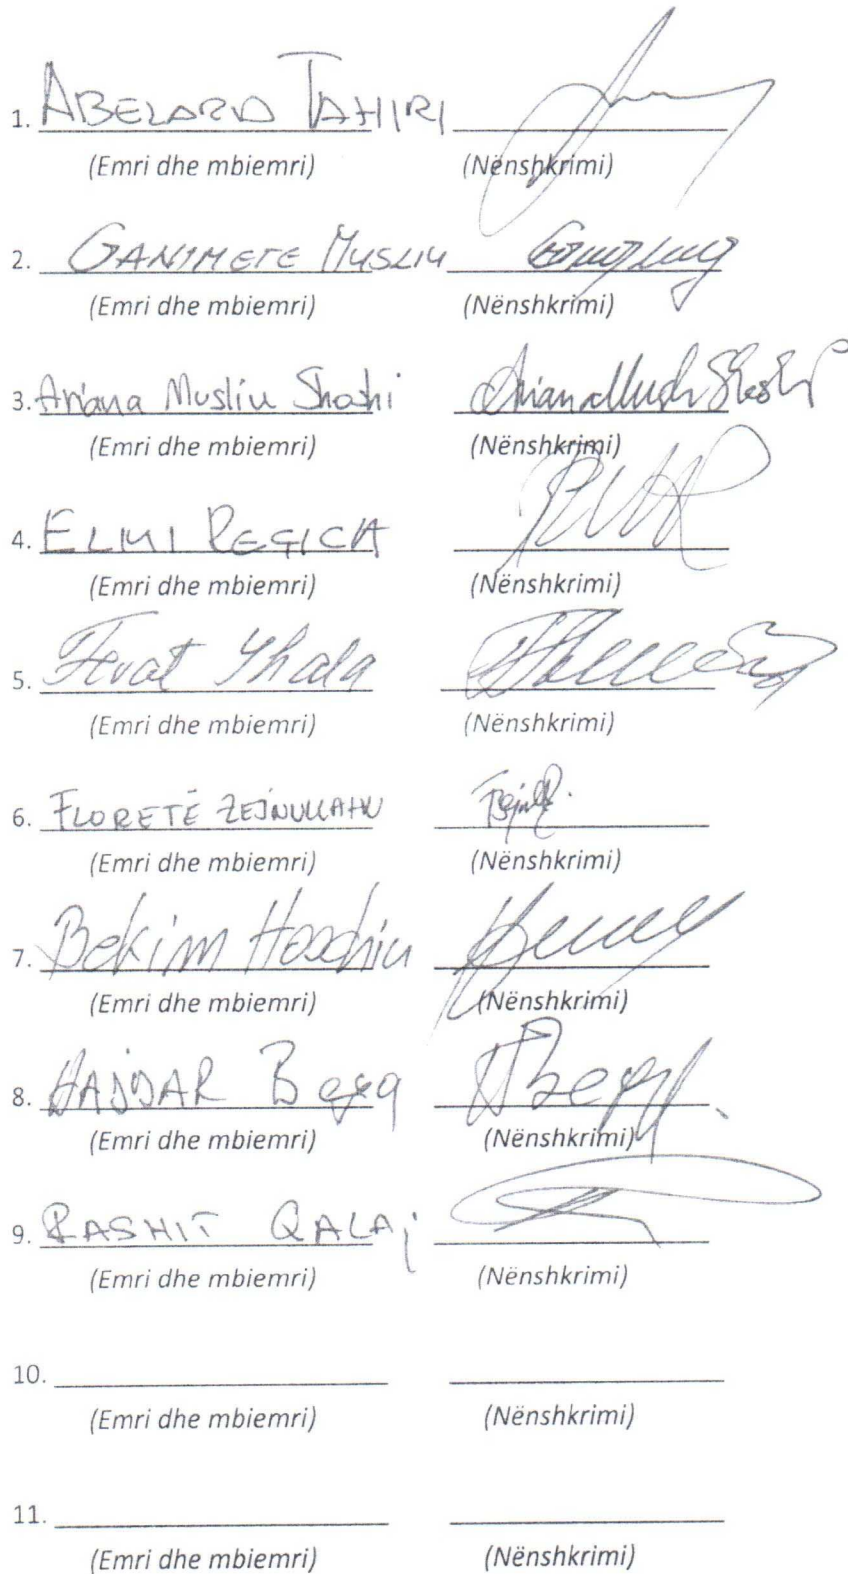 1. ABELARD TAHIRI
(Emri dhe mbiemri) (Nënshkrimi)
2. GANIMETE MUSLIU
(Emri dhe mbiemri) (Nënshkrimi)
3. Ariana Musliu Shoshi
(Emri dhe mbiemri) (Nënshkrimi)
4. ELMI REÇICA
(Emri dhe mbiemri) (Nënshkrimi)
5. Ferat Shala
(Emri dhe mbiemri) (Nënshkrimi)
6. FLORETË ZEJNULLAHU
(Emri dhe mbiemri) (Nënshkrimi)
7. Bekim Hoxhiu
(Emri dhe mbiemri) (Nënshkrimi)
8. HAJDAR Beqa
(Emri dhe mbiemri) (Nënshkrimi)
9. RASHIT QALAj
(Emri dhe mbiemri) (Nënshkrimi)
10.
(Emri dhe mbiemri) (Nënshkrimi)
11.
(Emri dhe mbiemri) (Nënshkrimi)